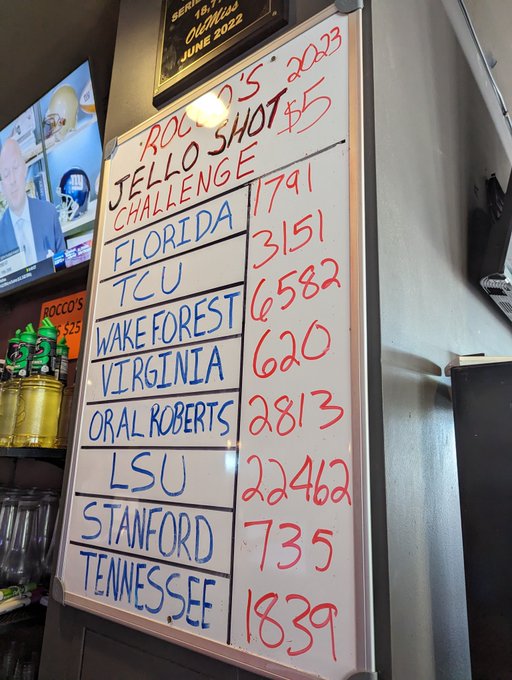 SERIE
18,7
OleMiss
JUNE 2022
ROCCO'S 2023
JELLO SHOT $5
CHALLENGE
FLORIDA 1791
TCU 3151
WAKE FOREST 6582
VIRGINIA 620
ORAL ROBERTS 2813
LSU 22462
STANFORD 735
TENNESSEE 1839
ROCCO'S
$25